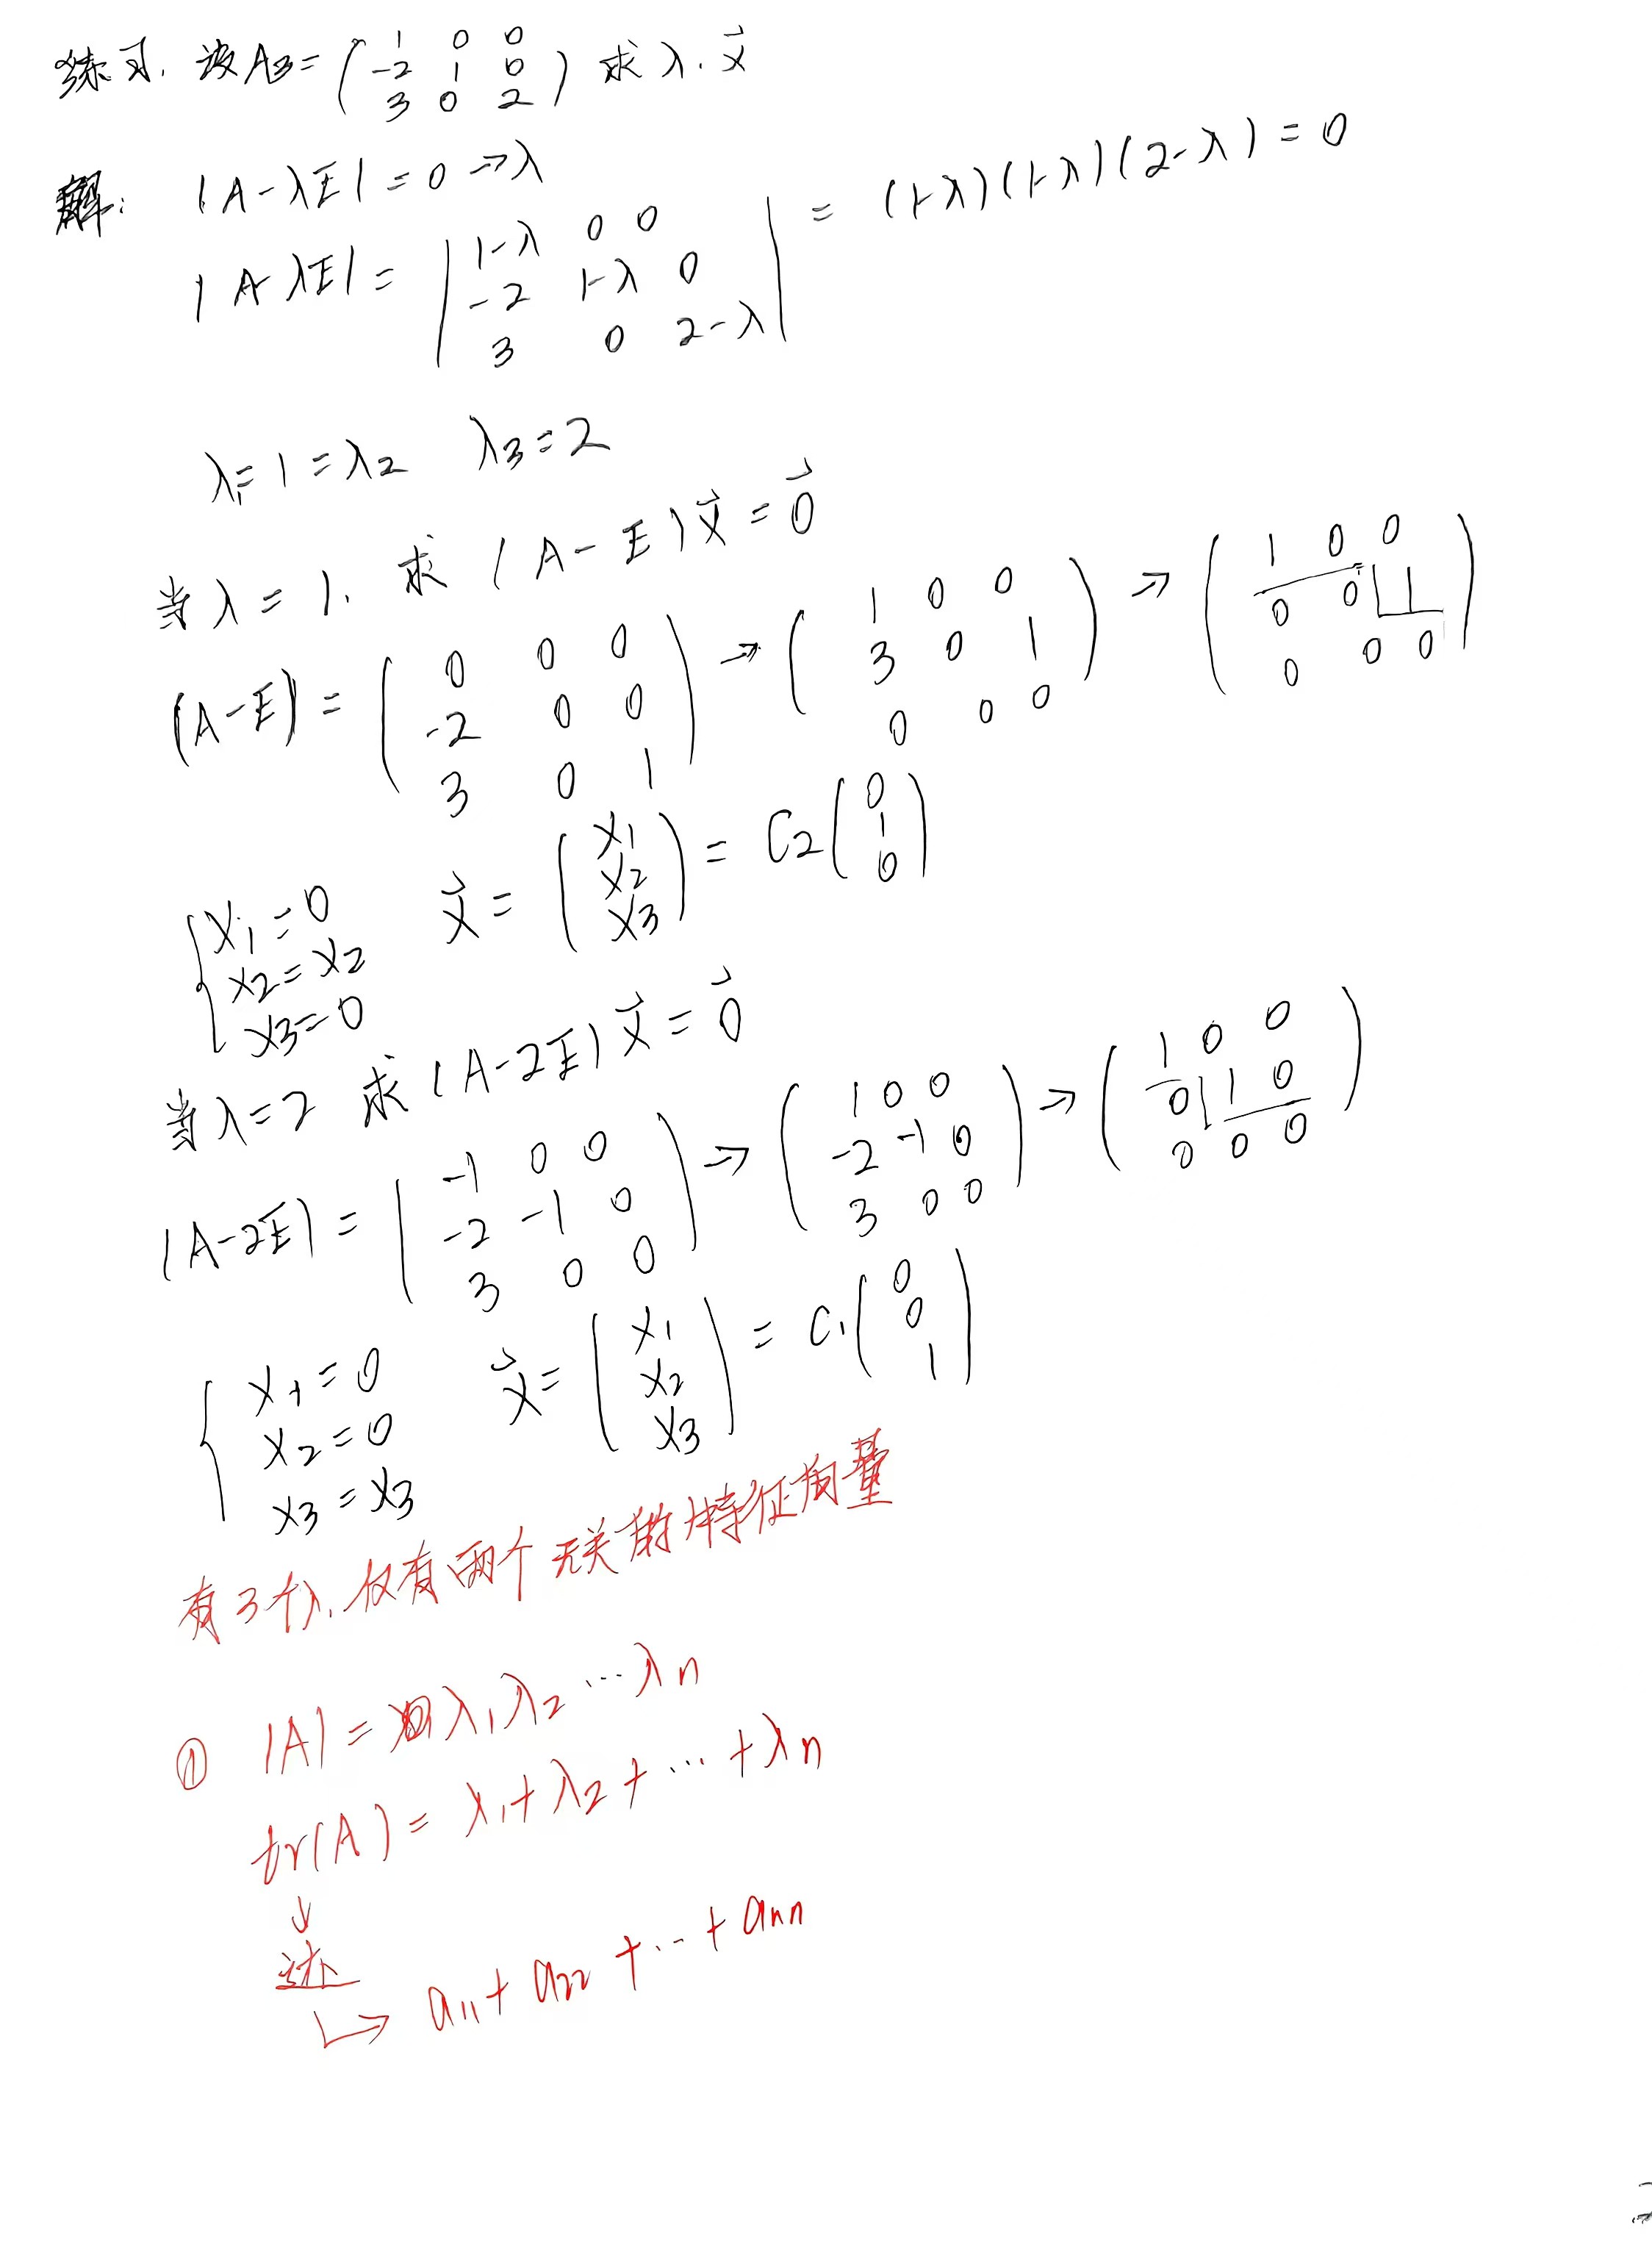 练习. 设A3=(1 0 0
-2 1 0
3 0 2) 求λ. x⃗
解: |A-λE|=0 → λ
|A-λE| = |1-λ 0 0
-2 1-λ 0
3 0 2-λ| = (1-λ)(1-λ)(2-λ)=0
λ1=1=λ2 λ3=2
当λ=1. 求 (A-E)x⃗=0⃗
(A-E)= (0 0 0
-2 0 0
3 0 1) → (1 0 0
3 0 1
0 0 0) → (1 0 0
0 0 1
0 0 0)
{x1=0
x2=x2
x3=0
x⃗= (x1
x2
x3) = C2(0
1
0)
当λ=2 求(A-2E)x⃗=0⃗
(A-2E)= (-1 0 0
-2 -1 0
3 0 0) → (1 0 0
-2 -1 0
3 0 0) → (1 0 0
0 1 0
0 0 0)
{x1=0
x2=0
x3=x3
x⃗= (x1
x2
x3) = C1(0
0
1)
有3个λ. 仅有两个无关的特征向量
① |A|=λ1λ2···λn
tr(A)=λ1+λ2+···+λn
↓
迹
↳ a11+a22+···+ann